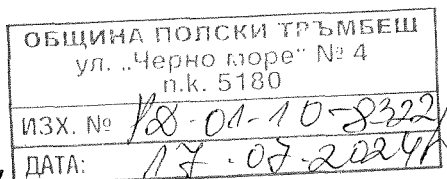 ОБЩИНА ПОЛСКИ ТРЪМБЕШ
ул. „Черно море" № 4
п.к. 5180
ИЗХ. № РД-01-10-8322/
ДАТА: 17.07.2024г.